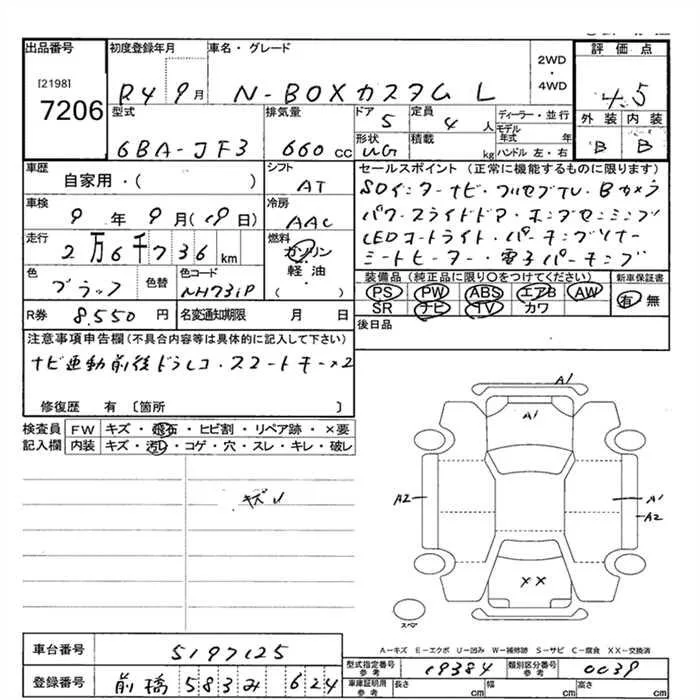 出品番号 初度登録年月 車名・グレード 評価点
[2198]
7206
R4 9月 N-BOXカスタム L 2WD・4WD 4.5
型式 排気量 ドア 5 定員 4人 ディーラー・並行 外装 内装
6BA-JF3 660cc 形状 WG 積載 kg モデル年式 年 B B
ハンドル 左・右
車歴 シフト セールスポイント(正常に機能するものに限ります)
自家用・( ) AT SDインターナビ・フルセグTV・Bカメラ
車検 冷房 パワースライドドア・ホンダセンシング
9年9月(19日) AAC LEDコートライト・パーキングソナー
走行 燃料 シートヒーター・電子パーキング
2万6千736km ガソリン・軽油・( )
色 色替 色コード 装備品(純正品に限り○をつけてください) 新車保証書
ブラック NH731P PS PW ABS エアB AW 有 無
SR ナビ TV カワ
R券 8,550円 名変通知期限 月 日 後日品
注意事項申告欄(不具合内容等は具体的に記入して下さい)
ナビ連動前後ドラレコ・スマートキー×2
修復歴 有〔箇所 〕
検査員 FW キズ・飛石・ヒビ割・リペア跡・×要
記入欄 内装 キズ・汚レ・コゲ・穴・スレ・キレ・破レ
A1
A1
キズ
A2 A1
A2
XX
スペア
A-キズ E-エクボ U-凹み W-補修跡 S-サビ C-腐食 XX-交換済
車台番号 5197125
型式指定番号 参考 19384 類別区分番号 参考 0039
登録番号 前橋 583 み 624
車庫証明用 参考 長さ cm 幅 cm 高さ cm